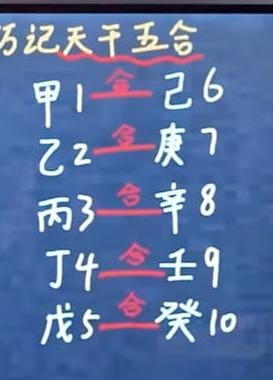 巧记天干五合
甲1合己6
乙2合庚7
丙3合辛8
丁4合壬9
戊5合癸10